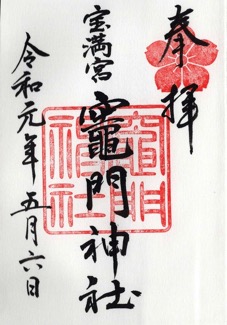 奉拝
宝満宮
竈門神社
令和元年五月六日
竈門
神社